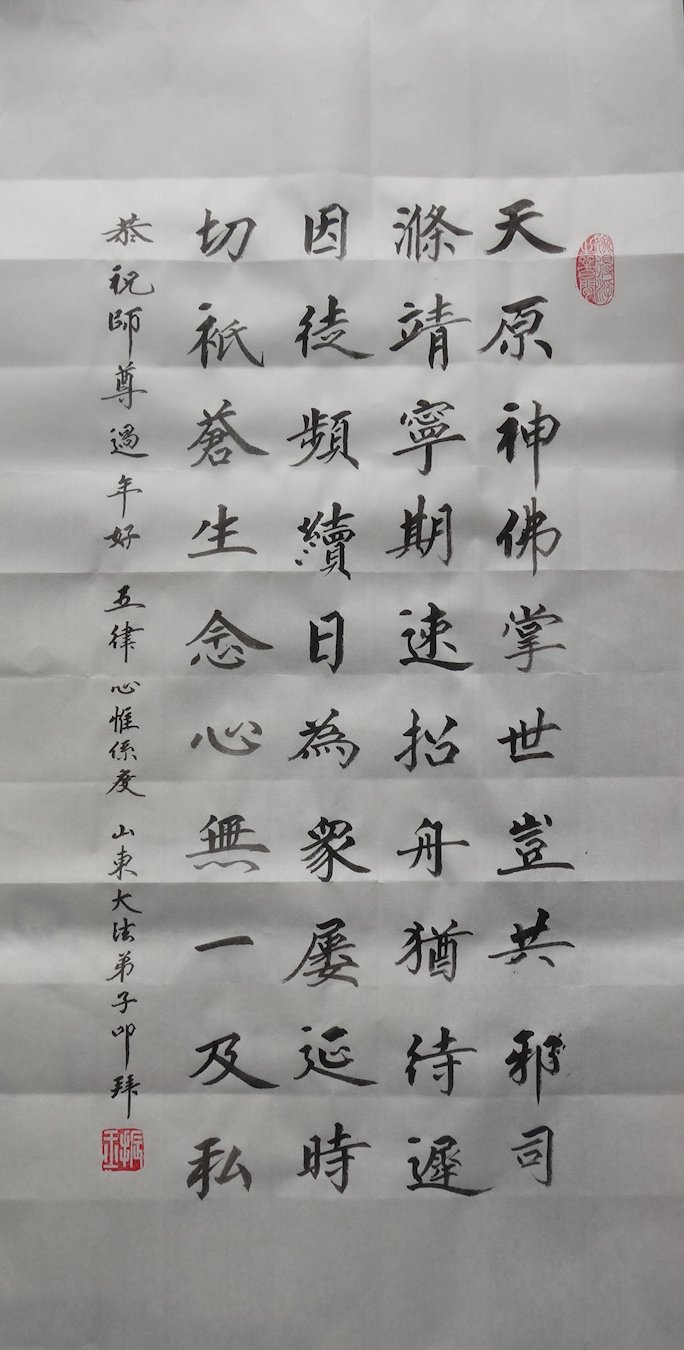 天原神佛掌世豈共邪司
滌靖寧期速招舟猶待遲
因徒頻續日為衆屡延時
切祇蒼生念心無一及私
恭祝師尊過年好 五律 心惟係度 山東大法弟子叩拜